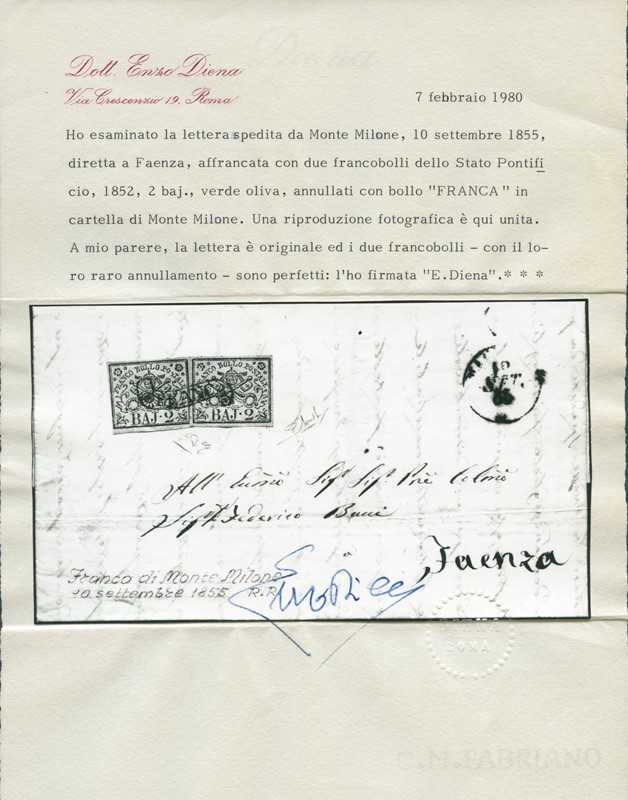 Dott. Enzo Diena
Via Crescenzio 19. Roma
7 febbraio 1980
Ho esaminato la lettera spedita da Monte Milone, 10 settembre 1855,
diretta a Faenza, affrancata con due francobolli dello Stato Pontifi
cio, 1852, 2 baj., verde oliva, annullati con bollo "FRANCA" in
cartella di Monte Milone. Una riproduzione fotografica è qui unita.
A mio parere, la lettera è originale ed i due francobolli - con il lo-
ro raro annullamento - sono perfetti: l'ho firmata "E.Diena".* * *
FRANCO BOLLO POSTALE FRANCO BOLLO POSTALE
BAJ·2 BAJ·2
FRANCA
SET.
All'
Federico
Faenza
Franca di Monte Milone
10 settembre 1855 R.R
ROMA
C.M.FABRIANO